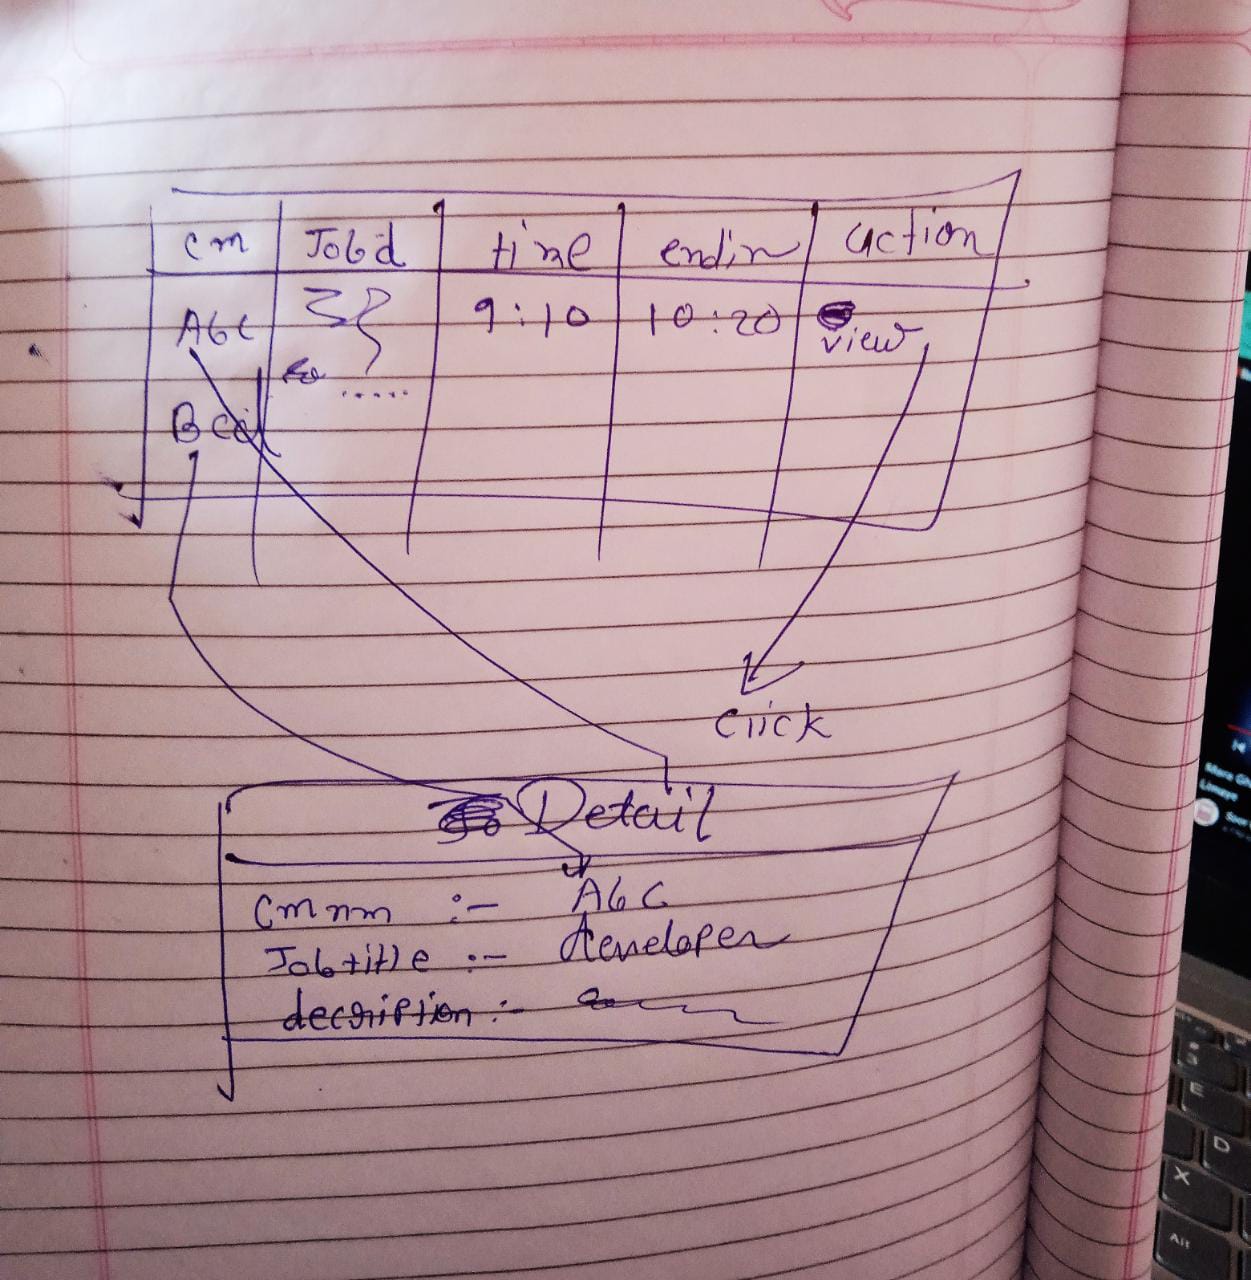 cm Jobd time endin action
ABC 9:10 10:20 view
.....
Bcd
Click
Detail
Cmnm :- ABC
Jobtitle :- developer
decription :-
E
D
X
Alt